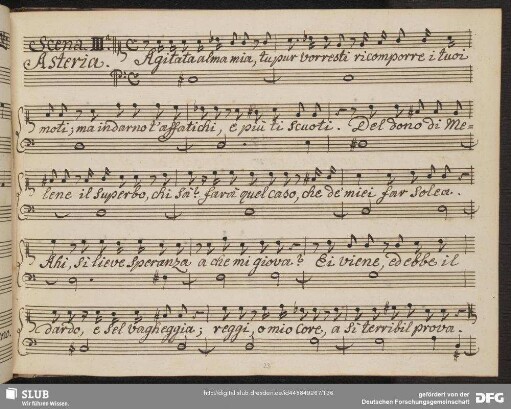 Scena III.ª
Asteria. Agitata alma mia, tu pur vorresti ricomporre i tuoi
moti; ma indarno t'affatichi, e più ti scuoti. Del dono di Me=
lene il superbo, chi sà? farà quel caso, che de' miei far solea.
Ahi, sì lieve speranza a che mi giova? Ei viene, ed ebbe il
dardo, e sel vagheggia; reggi, o mio core, a sì terribil prova.
SLUB
Wir führen Wissen.
gefördert von der
Deutschen Forschungsgemeinschaft
DFG